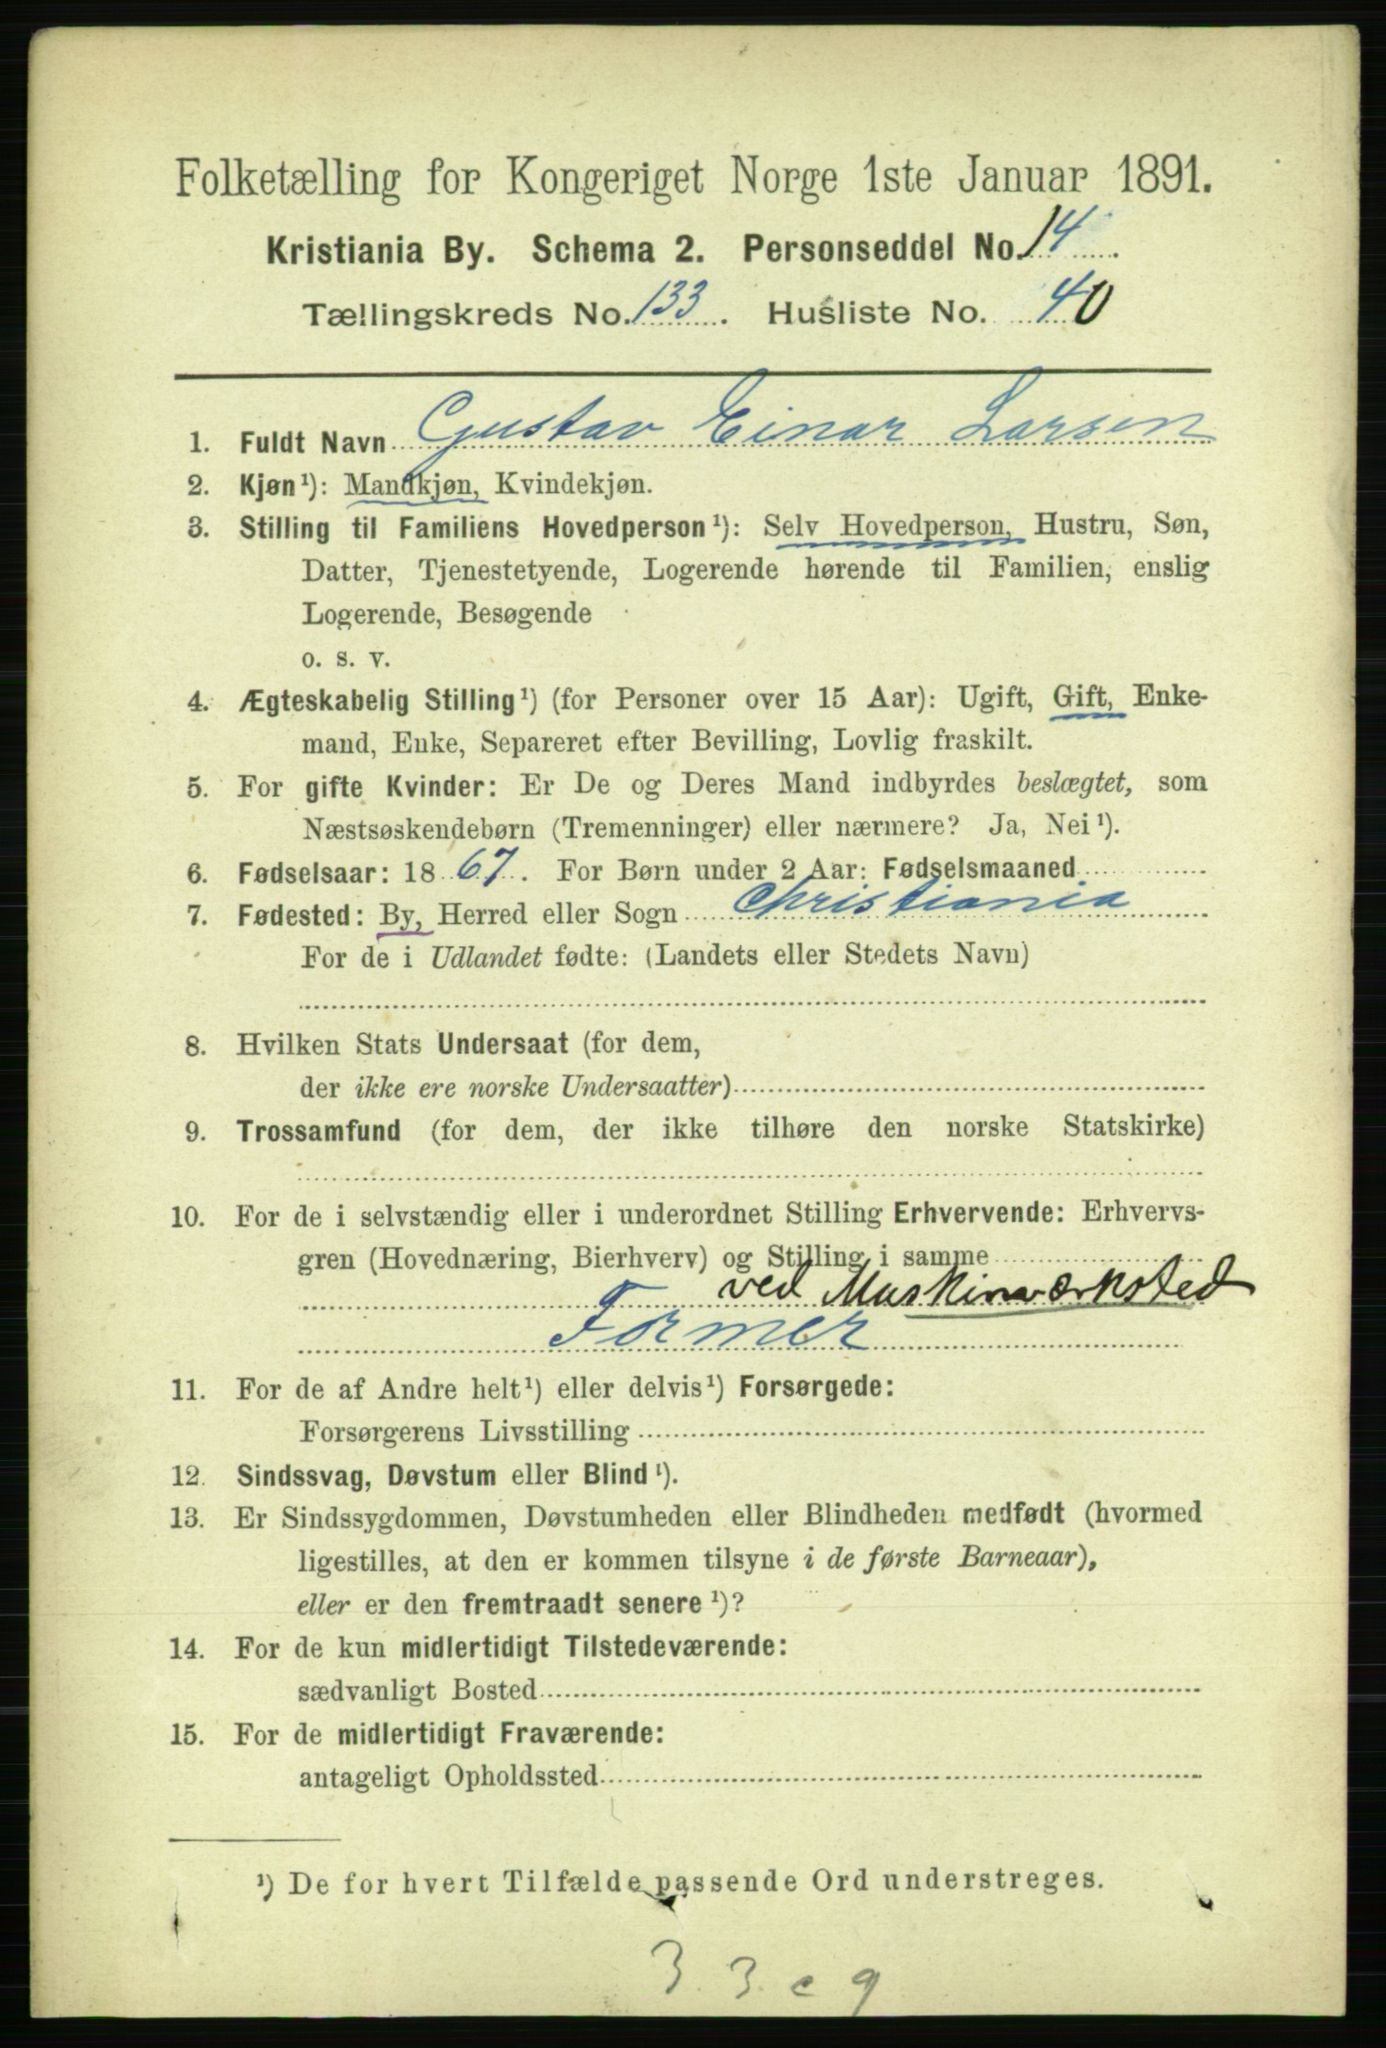 Folketælling for Kongeriget Norge 1ste Januar 1891.
Kristiania By. Schema 2. Personseddel No. 14
Tællingskreds No. 133. Husliste No. 40
1. Fuldt Navn Gustav Einar Larsen
2. Kjøn¹): Mandkjøn, Kvindekjøn.
3. Stilling til Familiens Hovedperson¹): Selv Hovedperson, Hustru, Søn,
Datter, Tjenestetyende, Logerende hørende til Familien, enslig
Logerende, Besøgende
o. s. v.
4. Ægteskabelig Stilling¹) (for Personer over 15 Aar): Ugift, Gift, Enke-
mand, Enke, Separeret efter Bevilling, Lovlig fraskilt.
5. For gifte Kvinder: Er De og Deres Mand indbyrdes beslægtet, som
Næstsøskendebørn (Tremenninger) eller nærmere? Ja, Nei¹).
6. Fødselsaar: 1867. For Børn under 2 Aar: Fødselsmaaned
7. Fødested: By, Herred eller Sogn Christiania
For de i Udlandet fødte: (Landets eller Stedets Navn)
8. Hvilken Stats Undersaat (for dem,
der ikke ere norske Undersaatter)
9. Trossamfund (for dem, der ikke tilhøre den norske Statskirke)
10. For de i selvstændig eller i underordnet Stilling Erhvervende: Erhvervs-
gren (Hovednæring, Bierhverv) og Stilling i samme
ved Maskinværksted
Former
11. For de af Andre helt¹) eller delvis¹) Forsørgede:
Forsørgerens Livsstilling
12. Sindssvag, Døvstum eller Blind¹).
13. Er Sindssygdommen, Døvstumheden eller Blindheden medfødt (hvormed
ligestilles, at den er kommen tilsyne i de første Barneaar),
eller er den fremtraadt senere¹)?
14. For de kun midlertidigt Tilstedeværende:
sædvanligt Bosted
15. For de midlertidigt Fraværende:
antageligt Opholdssted
¹) De for hvert Tilfælde passende Ord understreges.
3. 3. c 9